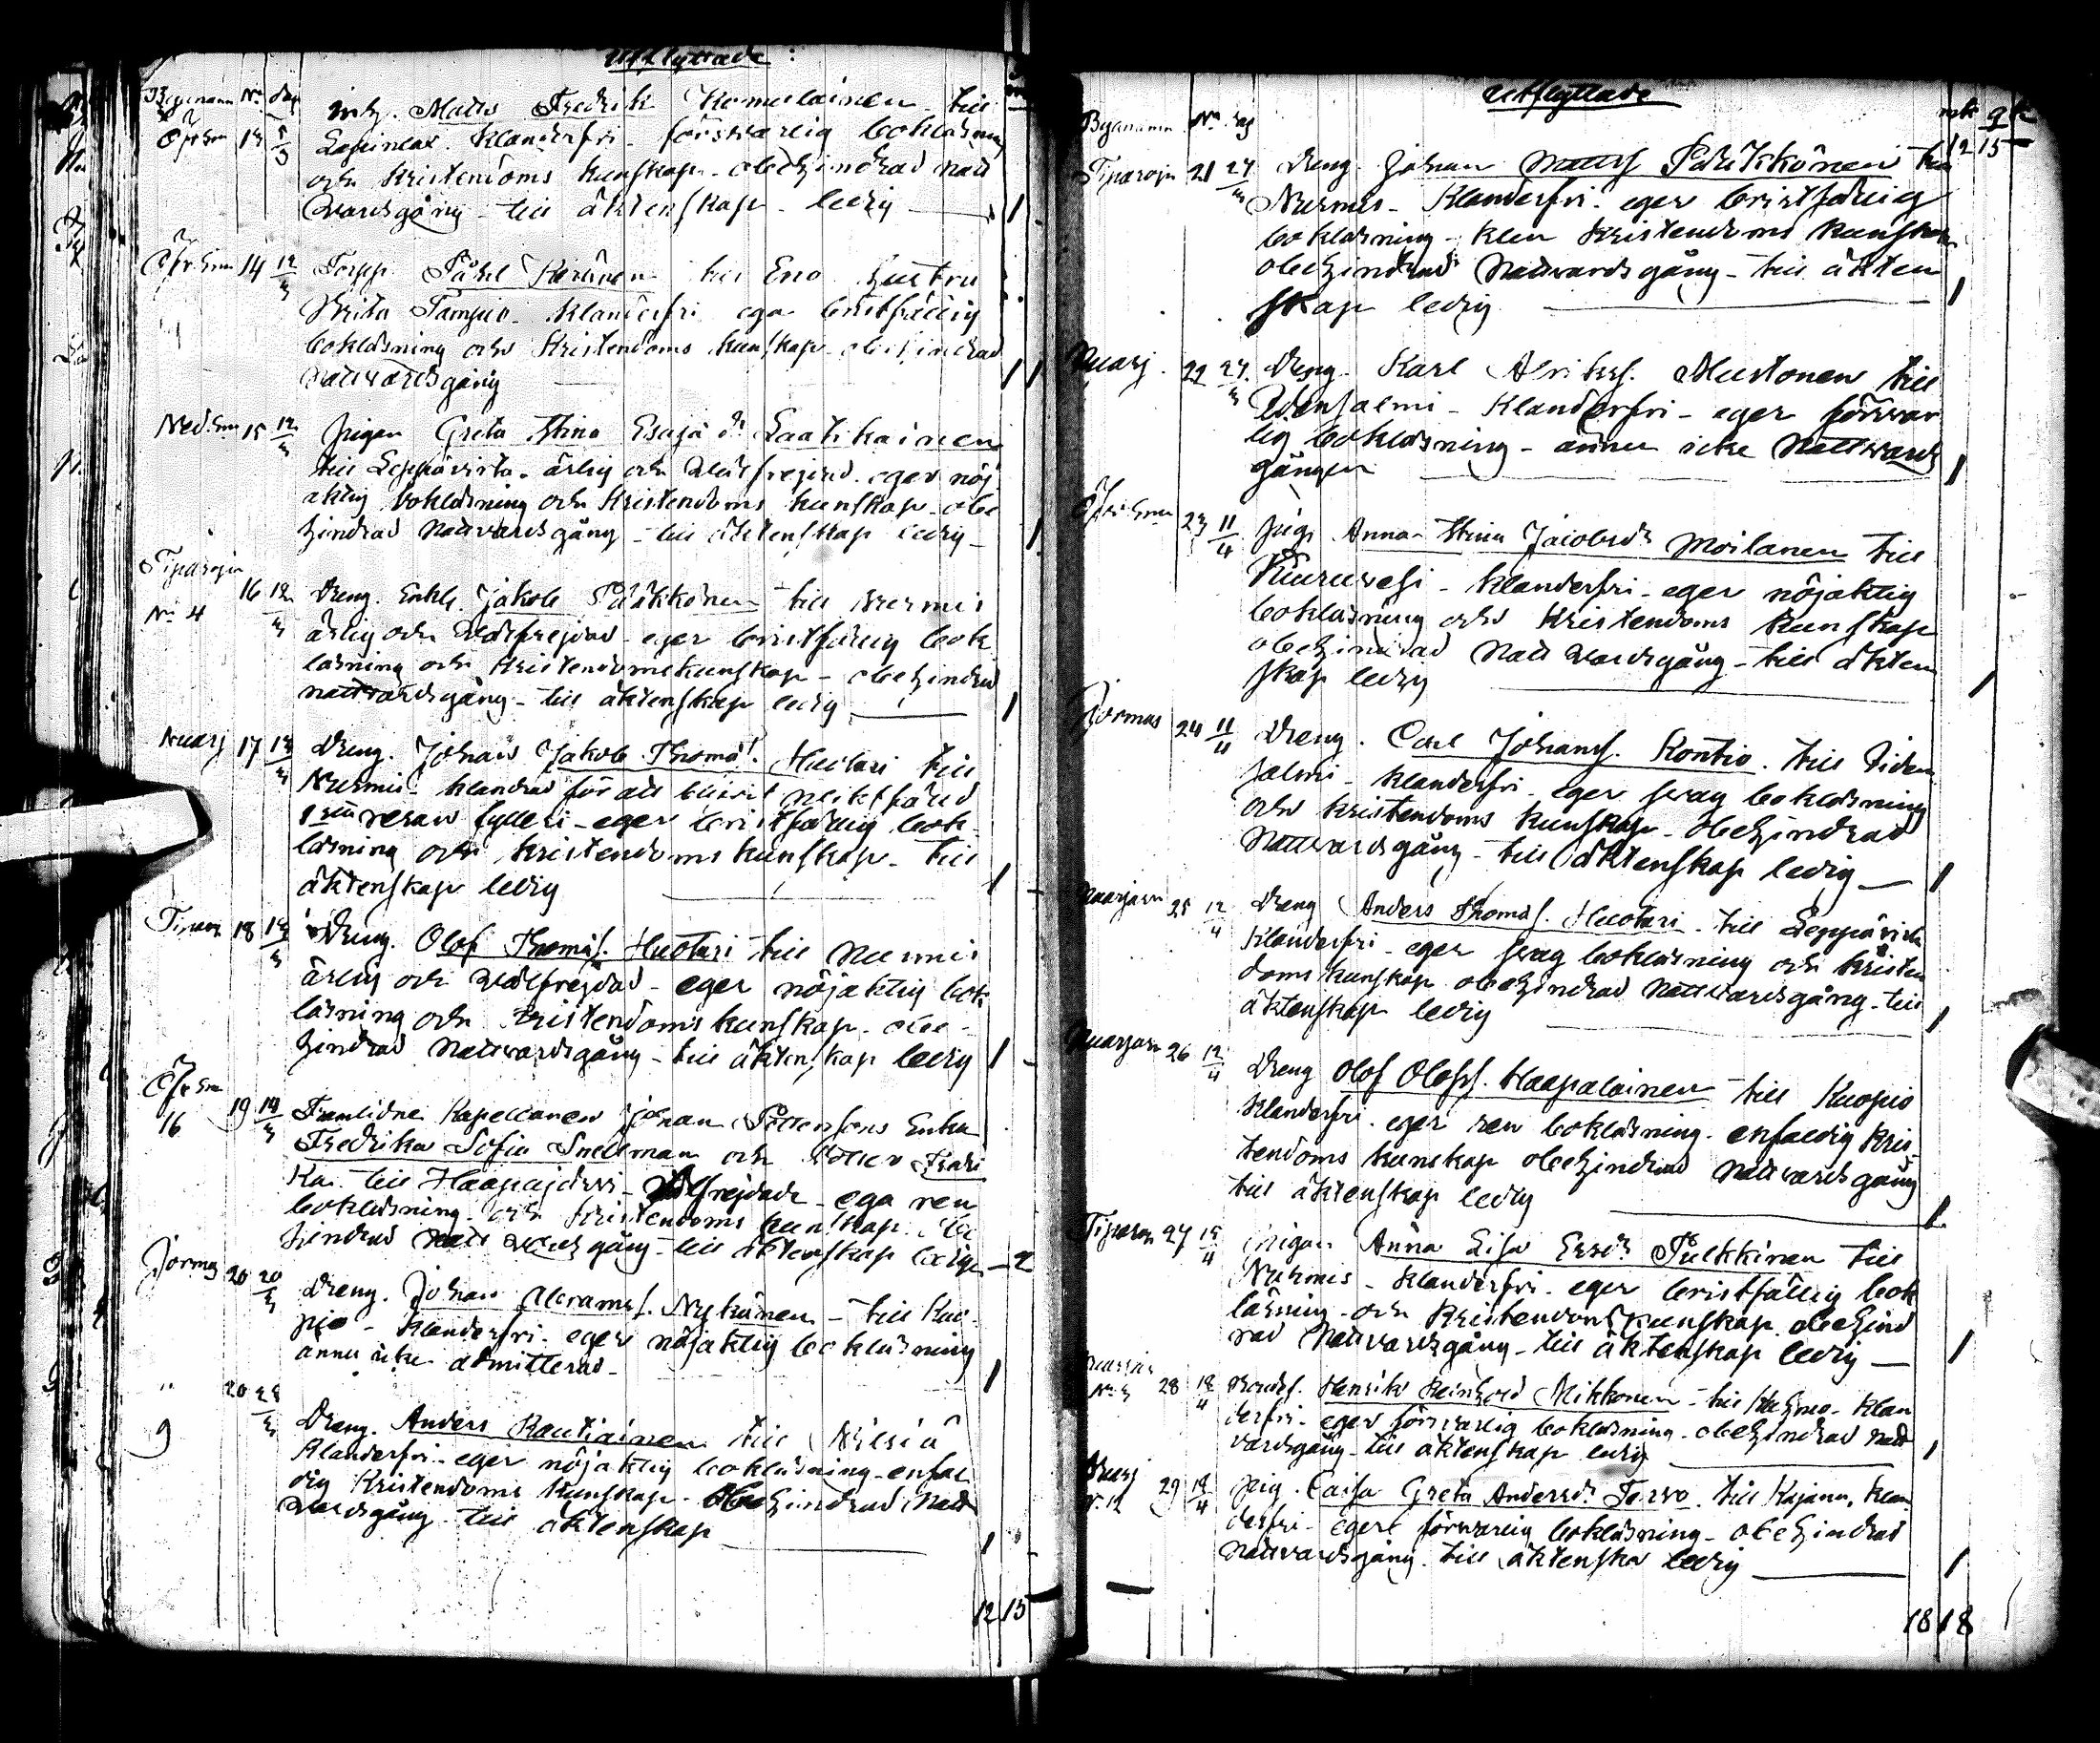 Utflyttade
Byanamn No dag
Öfr Sm 13 5/3 inh. Matts Fredrik Komulainen till
Lapinlax. Klanderfri. försvarlig bokläsning
och Kristendoms kunskap. obehindrad natt
vardsgång - till äktenskap ledig 1
Öfr Sm 14 12/3 Torpp. Påhl Keränen till Eno hustru
Brita Tampio. Klanderfri ega bristfällig
bokläsning och Kristendoms kunskap obehindrad
Nattvardsgång 1 1
Ned. Sm 15 12/3 Pigan Greta Stina Esajæ dr Laatikainen
till Leppävirta. ärlig och välfrejdad. eger nöj
aktig bokläsning och Kristendoms kunskap obe
hindrad Nattvardsgång - till äktenskap ledig 1
Tiparoju
No 4 16 12/3 Dreng. Enkl. Jakob Pääkkönen till Nurmis
ärlig och välfrejdad - eger bristfällig bok
läsning och Kristendomskunskap - obehindrad
nattvardsgång - till äktenskap ledig 1
Nuasj 17 13/3 Dreng. Johan Jakob Thomas. Huotari till
Nurmis - klandrad för att blifvit pliktfälld
resan fylleri - eger bristfällig bok
läsning och Kristendoms kunskap - till
äktenskap ledig 1
18 13/3 Dreng. Olof Thomas. Huotari till Nurmis
ärlig och välfrejdad - eger nöjaktig bok
läsning och Kristendoms kunskap - obe-
hindrad Nattvardsgång - till äktenskap ledig 1
Öfr Sm
16 19 14/3 Framlidne Kapellanen Johan Enka
Fredrika Sofia Snellman och dotter Fredri
ka till Haapajärvi - välfrejdade - ega ren
bokläsning och Kristendoms kunskap. obe
hindrad Nattvardsgång - till äktenskap lediga 2
Jormas 20 20/3 Dreng. Johan Abramss. Nykänen - till Kuo-
pio - klanderfri - eger nöjaktig bokläsning
ännu icke admitterad 1
" 9 20 28/3 Dreng. Anders Rautiainen till
Klanderfri - eger nöjaktig bokläsning - enfal
dig Kristendoms kunskap - obehindrad Natt
vardsgång till äktenskap 1
12 15
Utflyttade
Byanamn No dag mk qk
12 15
Tiparoju 21 24/3 Dreng. Johan Mattss Pääkkönen till
Nurmis - Klanderfri - eger bristfällig
bokläsning - klen Kristendoms kunskap
obehindrad Nattvardsgång - till äkten
skap ledig 1
Nuasj. 22 24/3 Dreng. Karl Alrikss. Mustonen till
Idensalmi - Klanderfri - eger försvar
lig bokläsning - ännu icke Nattvards
gången 1
Öfre Sm 23 11/4 Pig. Anna Stina Jacobsdr Moilanen till
Tuusniemi - Klanderfri - eger nöjaktig
bokläsning och Kristendoms kunskap
obehindrad Nattvardsgång - till äkten
skap ledig 1
Jormas 24 11/4 Dreng. Carl Johanss. Kontio. till Iden
salmi - Klanderfri - eger svag bokläsning
och Kristendoms kunskap - obehindrad
Nattvardsgång - till äktenskap ledig 1
Nuasjärvi 25 12/4 Dreng Anders Thomass. Huotari. till Leppävirta
Klanderfri - eger svag bokläsning och Kristen
doms kunskap obehindrad Nattvardsgång - till
äktenskap ledig 1
Nuasjärvi 26 12/4 Dreng Olof Olofss. Haapalainen till Kuopio
Klanderfri. eger ren bokläsning. enfaldig Kris-
tendoms kunskap obehindrad Nattvardsgång
till äktenskap ledig 1
Tiparoju 27 15/4 Pigan Anna Lisa Ersdr Pulkkinen till
Nurmis - Klanderfri - eger bristfällig bok
läsning - och Kristendoms kunskap. obehind
rad Nattvardsgång - till äktenskap ledig 1
No 3 28 18/4 Bondes. Henrik Reinhold Mikkonen - till Kuhmo - klan
derfri - eger försvarlig bokläsning - obehindrad Natt
vardsgång - till äktenskap ledig 1
Nuasj
No 12 29 18/4 Pig. Caisa Greta Andersdr Tervo. till Kajana. klan
derfri - eger försvarlig bokläsning - obehindrad
Nattvardsgång. till äktenskap ledig 1
18 18